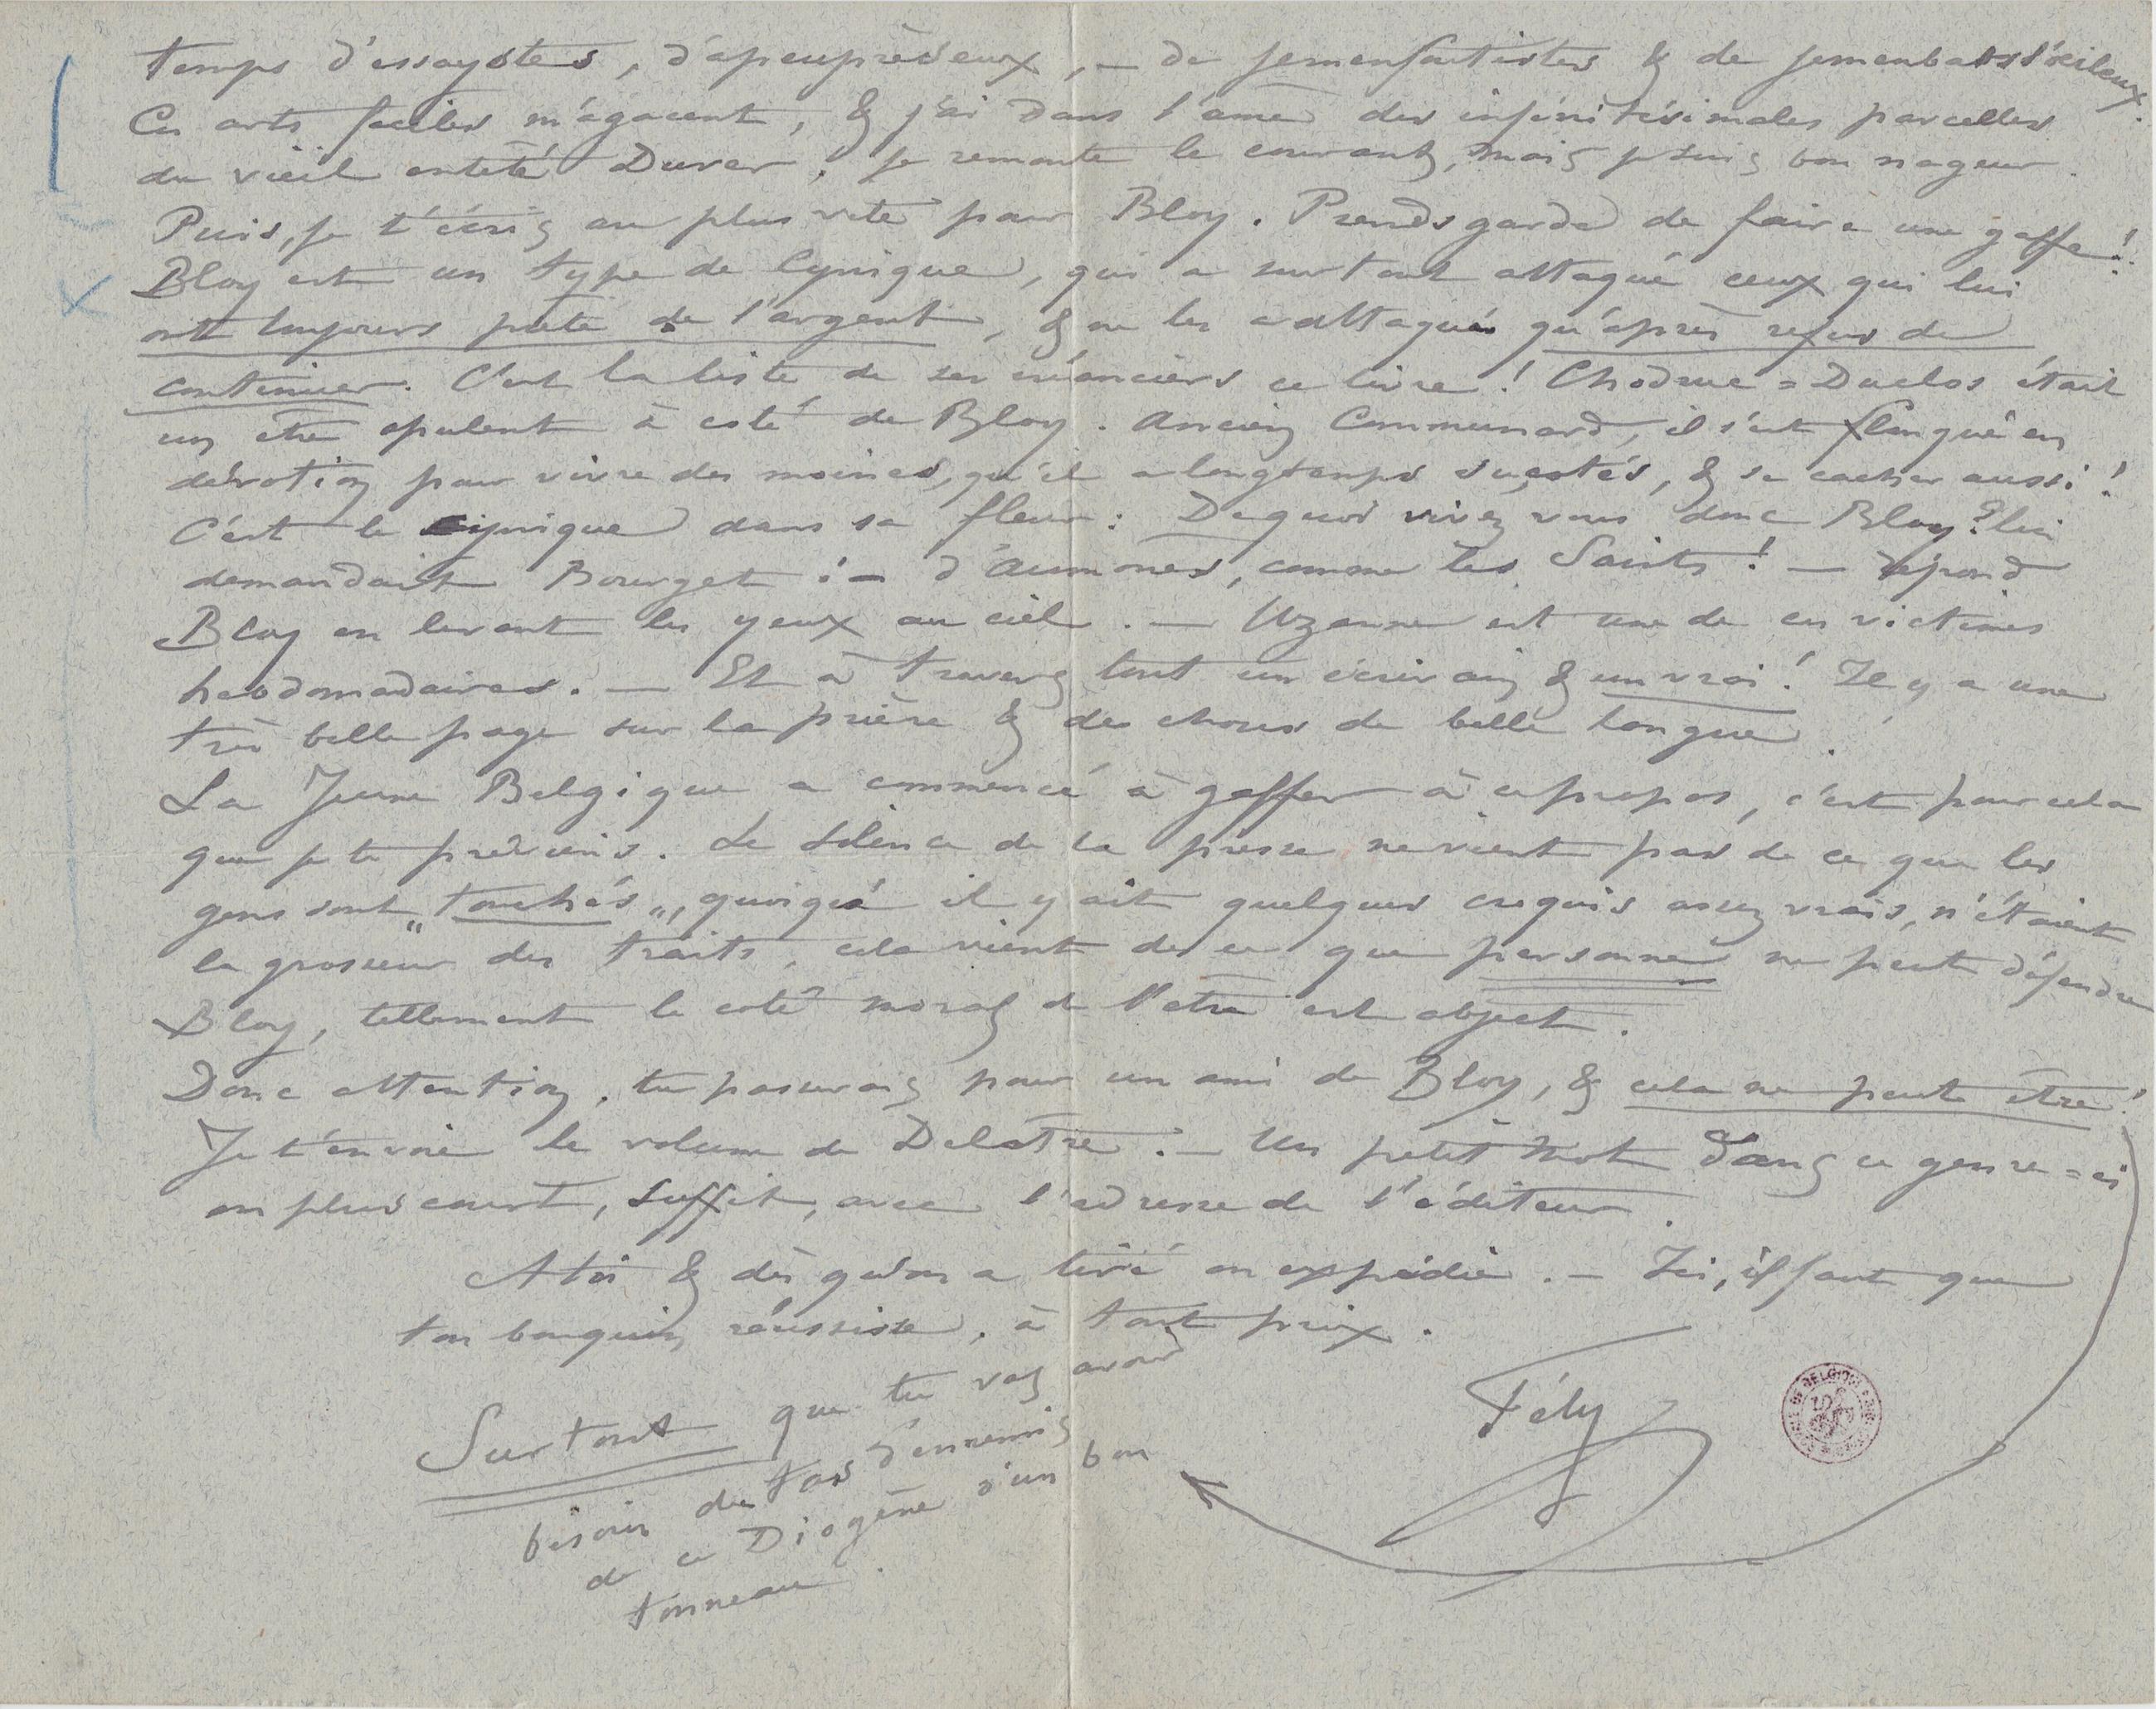 temps d'essayistes, d'apeuprèseux, – de jemenfoutistes & de jemenbatsl'œileux.
Ces arts faciles m'agacent, & j'ai dans l'ame des infinitésimales parcelles
du vieil entêté Durer. Je remonte le courant, mais je suis bon nageur.
Puis, je t'écris au plus vite pour Bloy. Prends garde de faire une gaffe!
Bloy est un type de Cynique, qui a surtout attaqué ceux qui lui
ont toujours prêté de l'argent, & ne les a attaqués qu'après refus de
continuer. C'est la liste de ses créanciers ce livre! Chodruc=Duclos était
un être opulent à coté de Bloy. Ancien Communard, il s'est flanqué en
dévotion pour vivre des moines, qu'il a longtemps suçotés, & se cacher aussi!
C'est le Cynique dans sa fleur: De quoi vivez vous donc Bloy? lui
demandait Bourget :– d'Aumones, comme les Saints! – répond
Bloy en levant les yeux au ciel. – Uzanne est une de ces victimes
hebdomadaires. – Et à travers tout un écrivain & un vrai! Il y a une
très belle page sur la prière & des choses de belle langue.
La Jeune Belgique a commencé à gaffer à ce propos, c'est pour cela
que je te préviens. Le silence de la presse ne vient pas de ce que les
gens sont „touchés", quoiqu'il y ait quelques croquis assez vrais, n'étaient
la grosseur des traits, cela vient de ce que personne ne peut défendre
Bloy, tellement le coté moral de l'etre est abject.
Donc attention, tu passerais pour un ami de Bloy, & cela ne peut être!
Je t'envoie le volume de Delatre. – Un petit mot dans ce genre=ci
en plus court, suffit, avec l'adresse de l'éditeur.
A toi & dès qu'on a tiré on expédie. – Ici, il faut que
ton bouquin réussisse, à tout prix.
Fély
Surtout que tu vas avoir
besoin du tas d'ennemis
de ce Diogène d'un bon
tonneau.